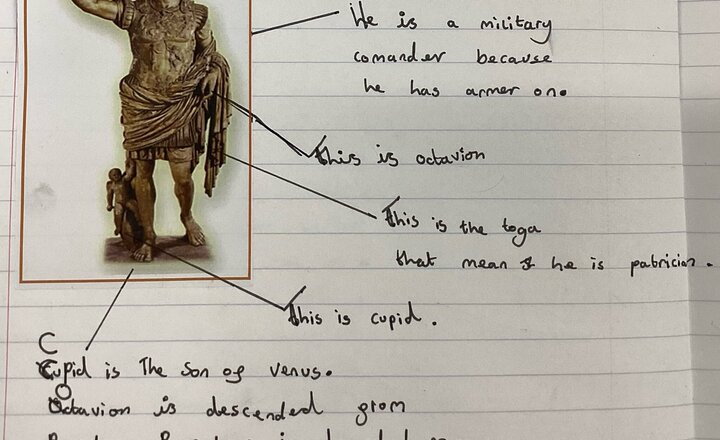 He is a military
comander because
he has armer on.
This is octavion
This is the toga
that mean he is patrician.
This is cupid.
Cupid is The son of venus.
Octavion is descended grom